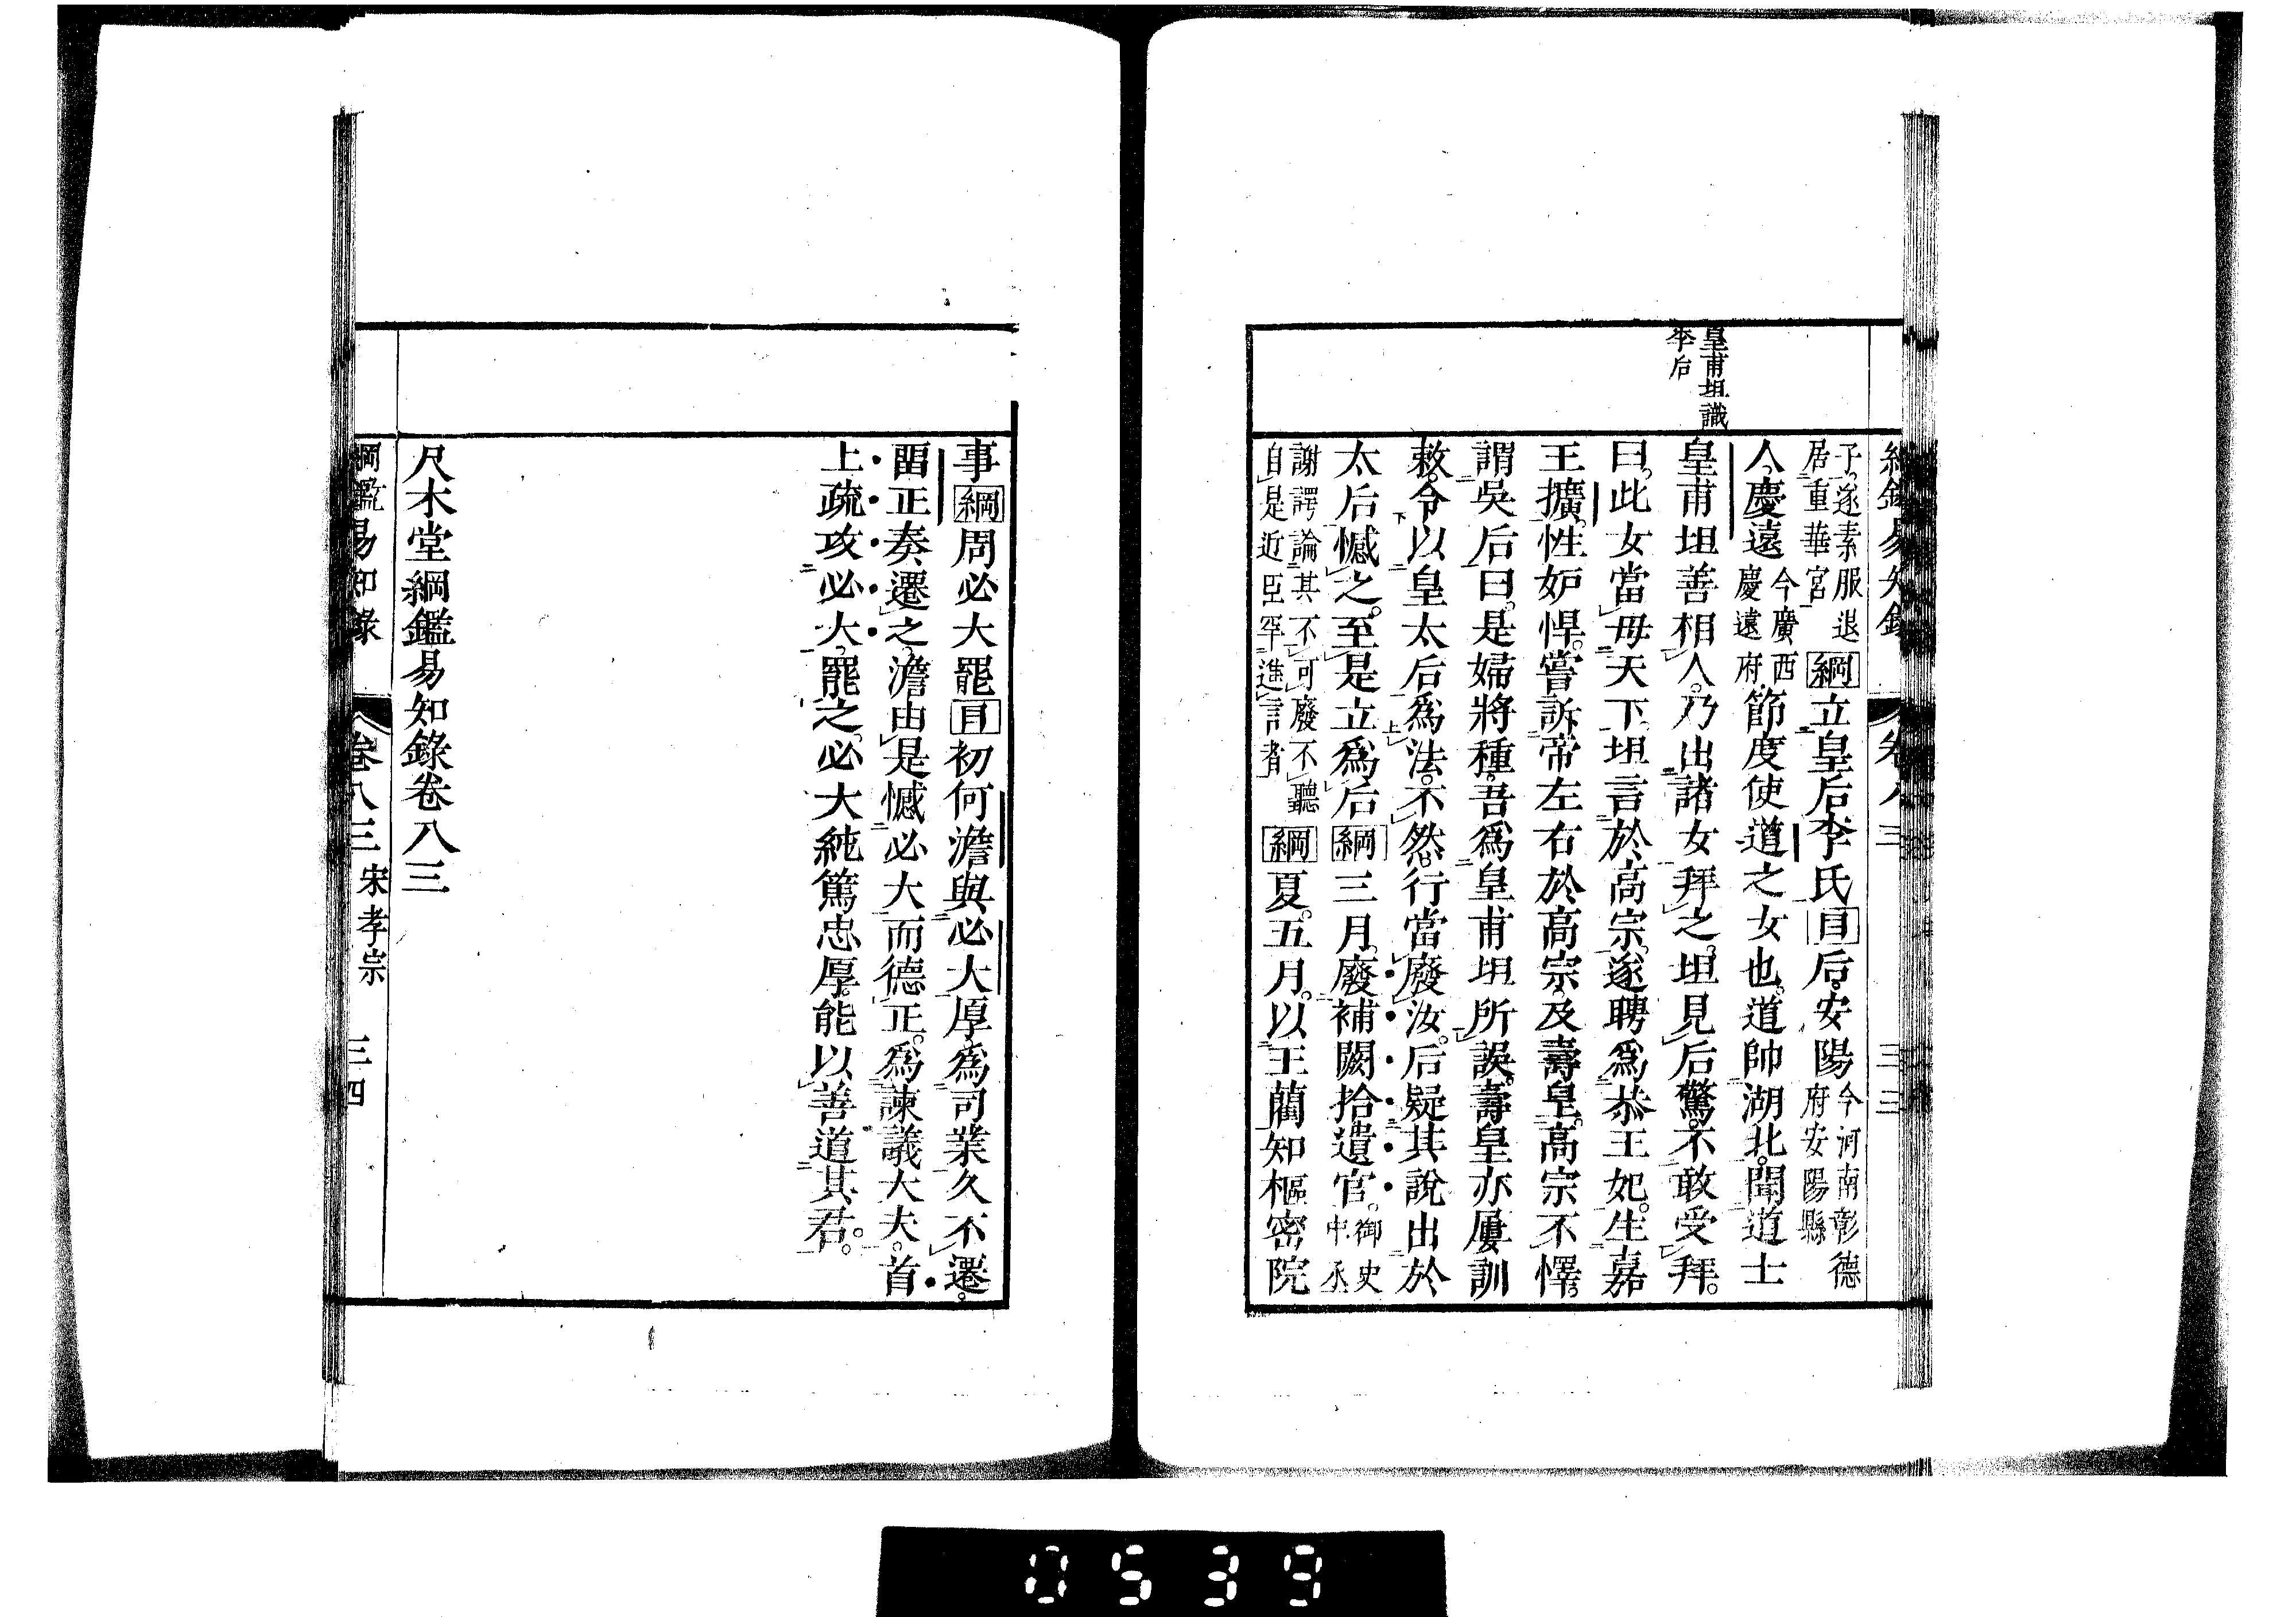 皇甫坦識
李后
子。遂素服退
居重華宮
綱立皇后李氏目后安陽
今河南彰德
府安陽縣
人。慶遠
今廣西
慶遠府
節度使道之女也。道帥湖北。聞道士
皇甫坦善相人。乃出諸女拜之。坦見后驚。不敢受拜。
曰。此女當母天下。坦言於高宗。遂聘爲恭王妃。生嘉
王擴。性妒悍。嘗訴帝左右於高宗。及壽皇。高宗不懌。
謂吳后曰。是婦將種。吾爲皇甫坦所誤。壽皇亦屢訓
敕。令以皇太后爲法。不然。行當廢汝。后疑其說出於
太后憾之。至是立爲后綱三月。廢補闕拾遺官。
御史
中丞
謝諤論其不可廢不聽
自是近臣罕進言者
綱夏。五月。以王藺知樞密院
事綱周必大罷目初何澹與必大厚。爲司業久不遷。
畱正奏遷之。澹由是憾必大而德正。爲諫議大夫。首
上疏攻必大。罷之。必大純篤忠厚。能以善道其君。
尺木堂綱鑑易知錄卷八三
綱鑑易知錄 卷八三 宋孝宗 三四
0539